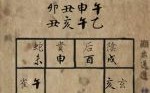 卯丑申午
丑亥午乙
蛇貴后陰
未申酉戌
雀午
玄亥